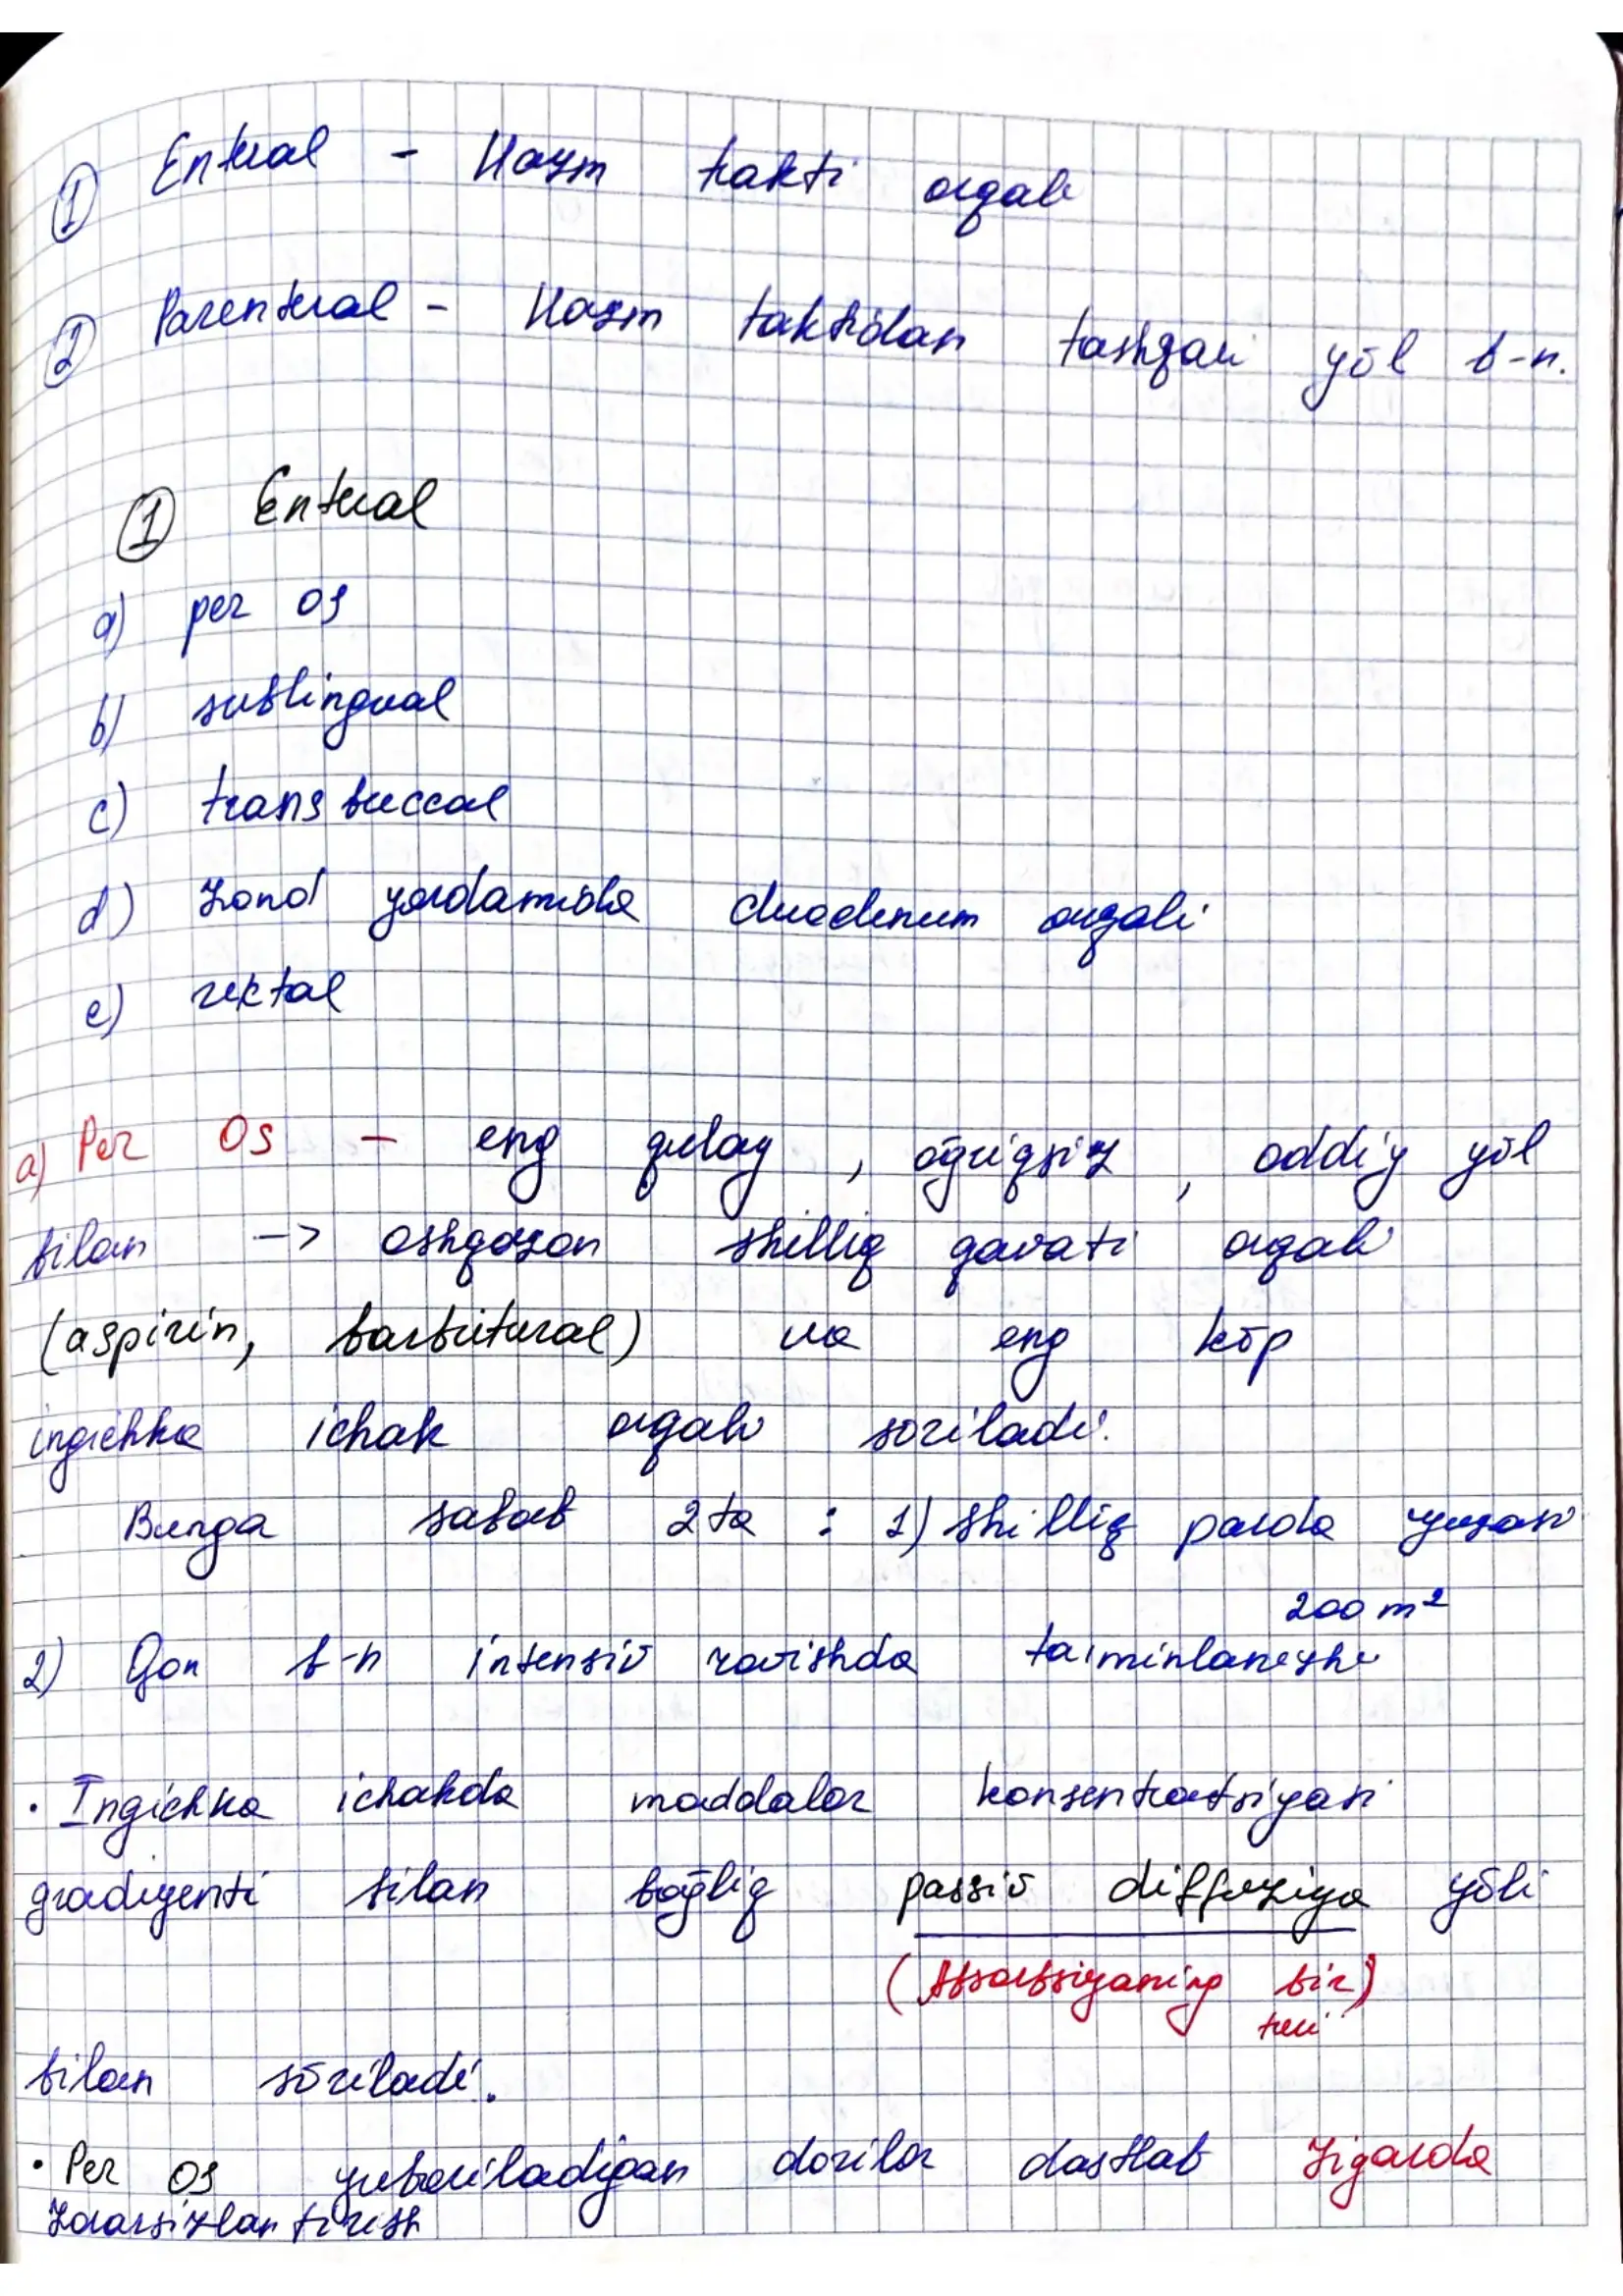 ① Enteral - Hazm trakti orqali
② Parenteral - Hazm taktidan tashqari yōl b-n.
① Enteral
a) per os
b) sublingual
c) trans buccal
d) Zond yordamida duodenum orqali
e) rektal
a) Per OS - eng qulay, ōgriqsiz, oddiy yōl
bilan -> oshqozon shilliq qavati orqali
(aspirin, barbitural) va eng kōp
ingichka ichak orqali soriladi.
Bunga sabab 2ta : 1) shilliq parda yuzasi
200 m²
2) Qon b-n intensiv ravishda ta'minlanishi
• Ingichka ichakda moddalar konsentratsiyasi
gradiyenti bilan bōgliq passiv diffuziya yōli
(Absorbsiyaning bir)
turi
bilan sōriladi.
• Per os yuboriladigan dorilar dastlab Jigarda
Zararsizlantirish